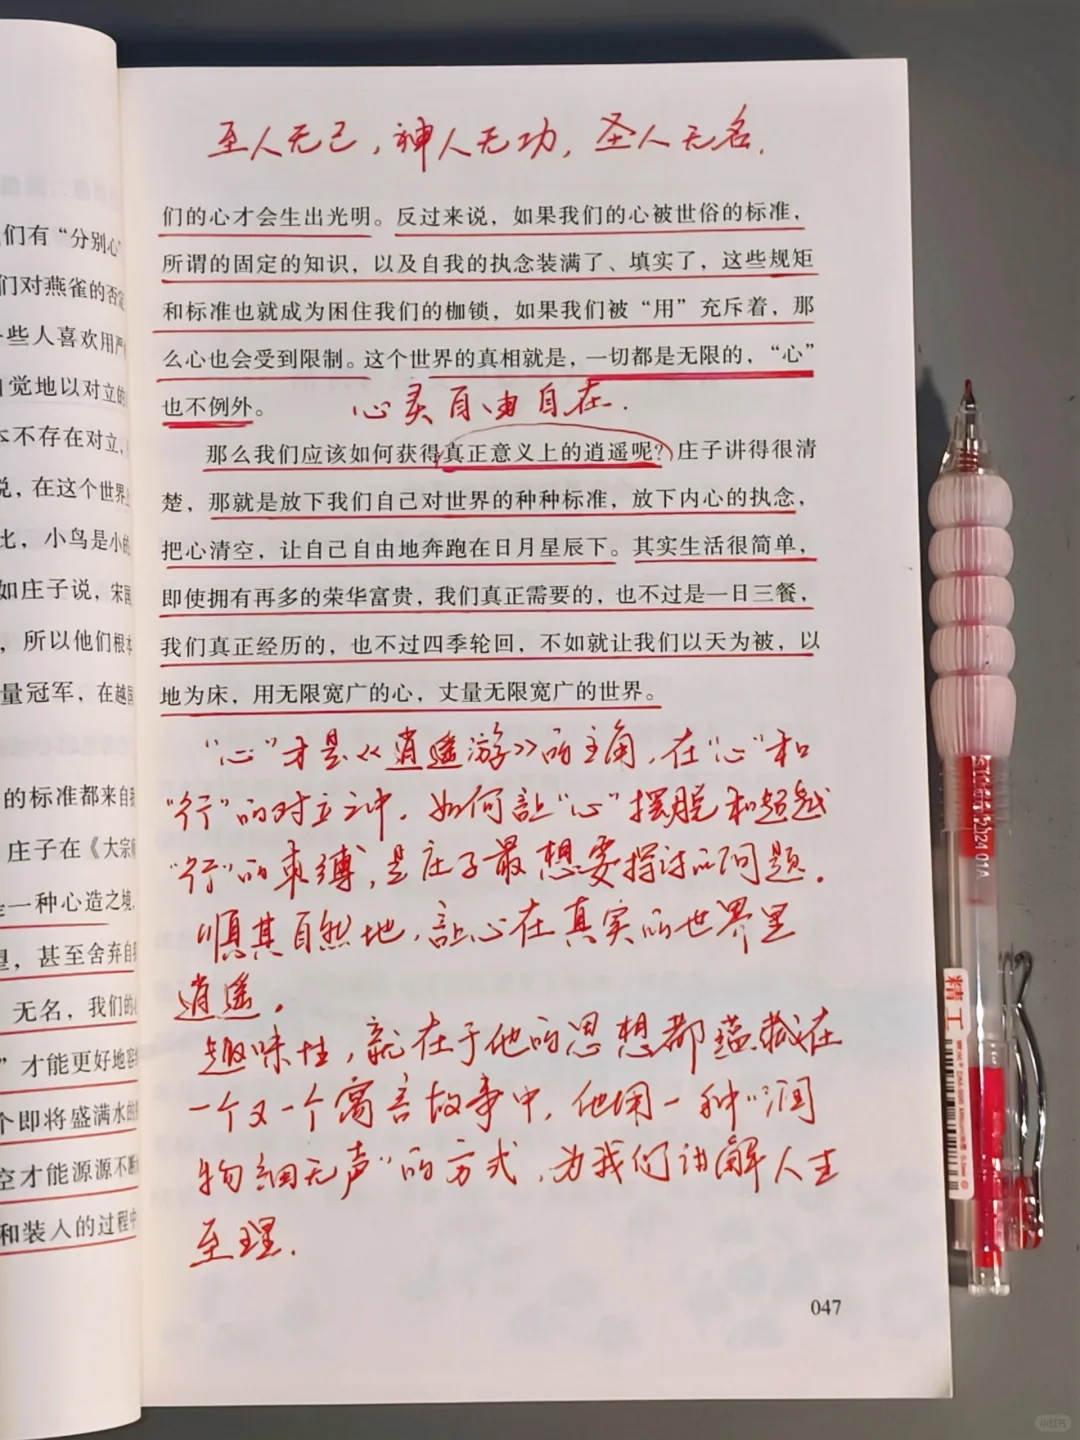 们有“分别心”
们对燕雀的否定
一些人喜欢用严
自觉地以对立的
本不存在对立，
说，在这个世界上
比，小鸟是小的
如庄子说，宋国
，所以他们根本
量冠军，在越国
的标准都来自我
庄子在《大宗师
一种心造之境，
望，甚至舍弃自我
无名，我们的心
”才能更好地容纳
个即将盛满水的
空才能源源不断
和装入的过程中
至人无己，神人无功，圣人无名．
们的心才会生出光明。反过来说，如果我们的心被世俗的标准，
所谓的固定的知识，以及自我的执念装满了、填实了，这些规矩
和标准也就成为困住我们的枷锁，如果我们被“用”充斥着，那
么心也会受到限制。这个世界的真相就是，一切都是无限的，“心”
也不例外。
心灵自由自在．
那么我们应该如何获得真正意义上的逍遥呢？庄子讲得很清
楚，那就是放下我们自己对世界的种种标准，放下内心的执念，
把心清空，让自己自由地奔跑在日月星辰下。其实生活很简单，
即使拥有再多的荣华富贵，我们真正需要的，也不过是一日三餐，
我们真正经历的，也不过四季轮回，不如就让我们以天为被，以
地为床，用无限宽广的心，丈量无限宽广的世界。
“心”才是《逍遥游》的主角，在“心”和
“行”的对立之中．如何让“心”摆脱和超越
“行”的束缚，是庄子最想要探讨的问题．
顺其自然地，让心在真实的世界里
逍遥。
趣味性，就在于他的思想都蕴藏在
一个又一个寓言故事中，他用一种“润
物细无声”的方式，为我们讲解人生
至理．
047
精工
小红书